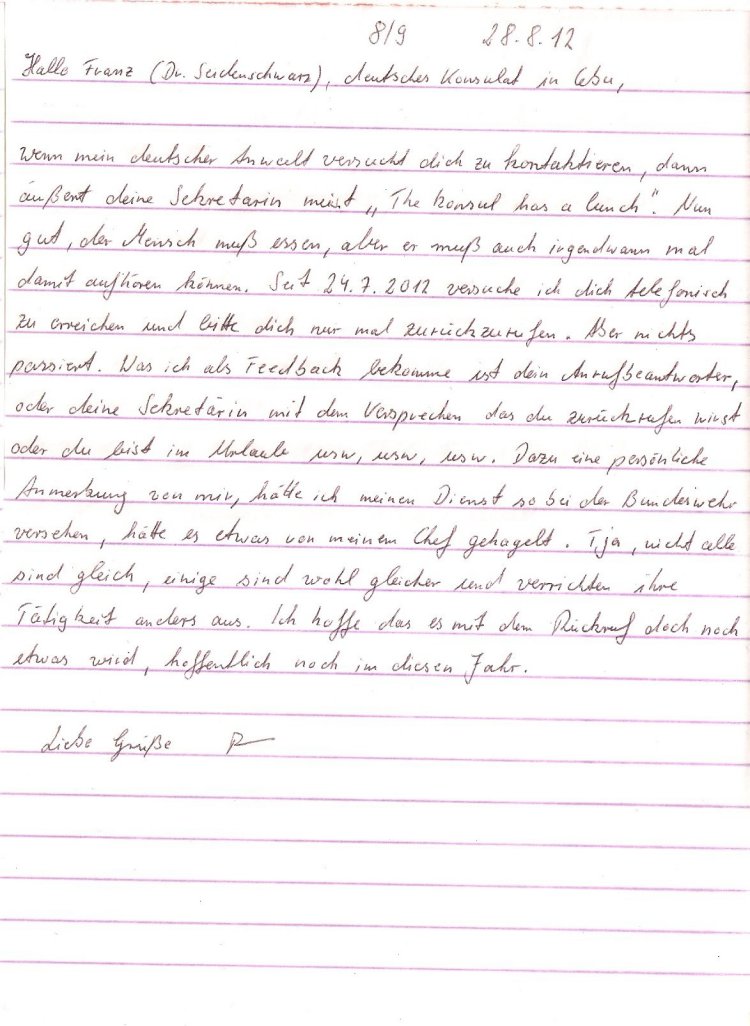 8/9 28.8.12
Hallo Franz (Dr. Seidenschwarz), deutsches Konsulat in Cebu,
wenn mein deutscher Anwalt versucht dich zu kontaktieren, dann
äußert deine Sekretärin meist „The konsul has a lunch“. Nun
gut, der Mensch muß essen, aber er muß auch irgendwann mal
damit aufhören können. Seit 24.7.2012 versuche ich dich telefonisch
zu erreichen und bitte dich nur mal zurückzurufen. Aber nichts
passiert. Was ich als Feedback bekomme ist dein Anrufbeantworter,
oder deine Sekretärin mit dem Versprechen das du zurückrufen wirst
oder du bist im Urlaub usw, usw, usw. Dazu eine persönliche
Anmerkung von mir, hätte ich meinen Dienst so bei der Bundeswehr
versehen, hätte es etwas von meinem Chef gehagelt. Tja, nicht alle
sind gleich, einige sind wohl gleicher und verrichten ihre
Tätigkeit anders aus. Ich hoffe das es mit dem Rückruf doch noch
etwas wird, hoffentlich noch im diesen Jahr.
Liebe Grüße R